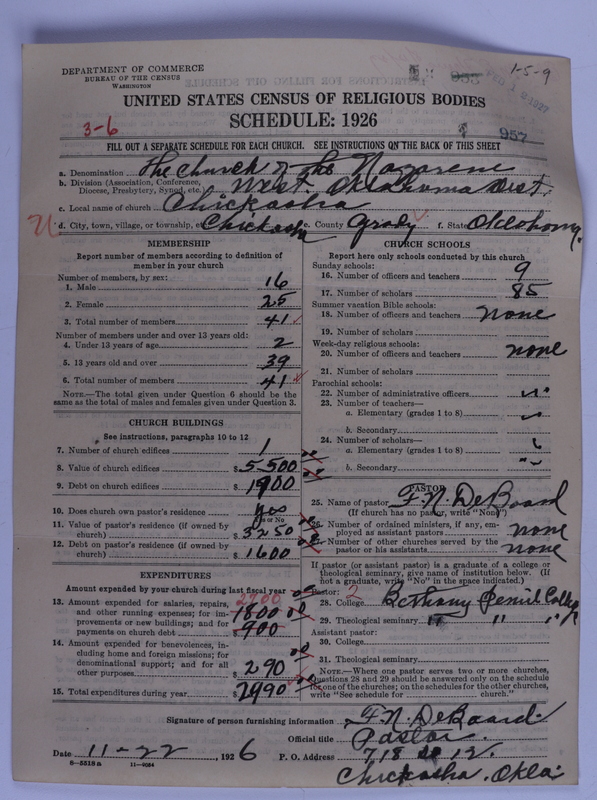 DEPARTMENT OF COMMERCE
BUREAU OF THE CENSUS
WASHINGTON
1-5-9
UNITED STATES CENSUS OF RELIGIOUS BODIES
SCHEDULE: 1926
3-6
957
FILL OUT A SEPARATE SCHEDULE FOR EACH CHURCH. SEE INSTRUCTIONS ON THE BACK OF THIS SHEET
a. Denomination The Church of the Nazarene
b. Division (Association, Conference, Diocese, Presbytery, Synod, etc.) West Oklahoma Dist.
c. Local name of church Chickasha
d. City, town, village, or township, etc. Chickasha e. County Grady f. State Oklahoma
MEMBERSHIP
Report number of members according to definition of
member in your church
Number of members, by sex:
1. Male 16
2. Female 25
3. Total number of members 41
Number of members under and over 13 years old:
4. Under 13 years of age 2
5. 13 years old and over 39
6. Total number of members 41
NOTE.—The total given under Question 6 should be the
same as the total of males and females given under Question 3.
CHURCH BUILDINGS
See instructions, paragraphs 10 to 12
7. Number of church edifices 1
8. Value of church edifices $ 5500
9. Debt on church edifices $ 1900
10. Does church own pastor's residence? yes
Yes or No
11. Value of pastor's residence (if owned by
church) $ 3250
12. Debt on pastor's residence (if owned by
church) $ 1600
EXPENDITURES
Amount expended by your church during last fiscal year
2700
13. Amount expended for salaries, repairs,
and other running expenses; for im-
provements or new buildings; and for
payments on church debt $ 1800 900
14. Amount expended for benevolences, in-
cluding home and foreign missions; for
denominational support; and for all
other purposes $ 290
15. Total expenditures during year $ 2990
CHURCH SCHOOLS
Report here only schools conducted by this church
Sunday schools:
16. Number of officers and teachers 9
17. Number of scholars 85
Summer vacation Bible schools:
18. Number of officers and teachers none
19. Number of scholars
Week-day religious schools:
20. Number of officers and teachers none
21. Number of scholars
Parochial schools:
22. Number of administrative officers "
23. Number of teachers—
a. Elementary (grades 1 to 8) "
b. Secondary
24. Number of scholars—
a. Elementary (grades 1 to 8) "
b. Secondary "
PASTOR
25. Name of pastor F. N. DeBoard
(If church has no pastor, write "None")
26. Number of ordained ministers, if any, em-
ployed as assistant pastors none
27. Number of other churches served by the
pastor or his assistants none
If pastor (or assistant pastor) is a graduate of a college or
theological seminary, give name of institution below. (If
not a graduate, write "No" in the space indicated.)
Pastor: 2
28. College Bethany Penil College
29. Theological seminary " " "
Assistant pastor:
30. College
31. Theological seminary
NOTE.—Where one pastor serves two or more churches,
Questions 28 and 29 should be answered only on the schedule
for one of the churches; on the schedules for the other churches,
write "See schedule for church."
Signature of person furnishing information F. N. DeBoard
Official title Pastor
Date 11-22, 1926 P. O. Address 718 So 12.
8-5518a 11-9054
Chickasha. Okla.